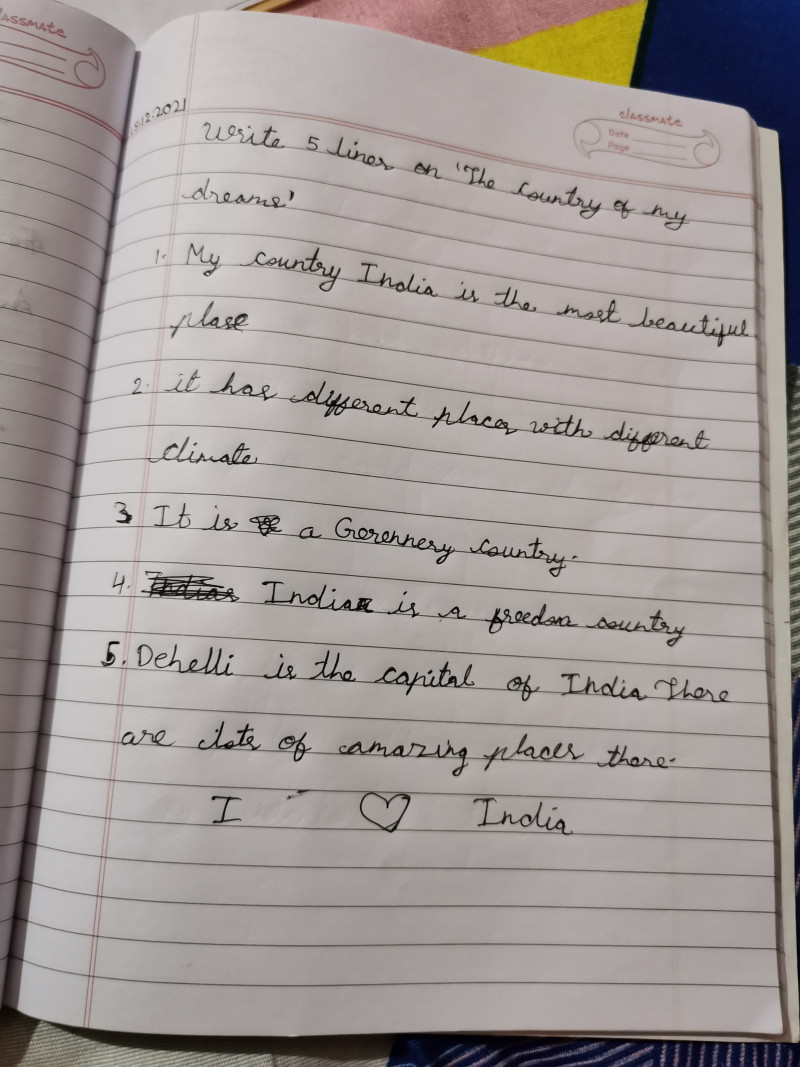 classmate
classmate
Date
Page
5.12.2021
Write 5 lines on 'The Country of my
dreams'
1. My country India is the most beautiful
place
2. it has different places with different
climate
3 It is a Gorennery country.
4. India is a freedom country
5. Dehelli is the capital of India There
are lots of amazing places there.
I ♡ India